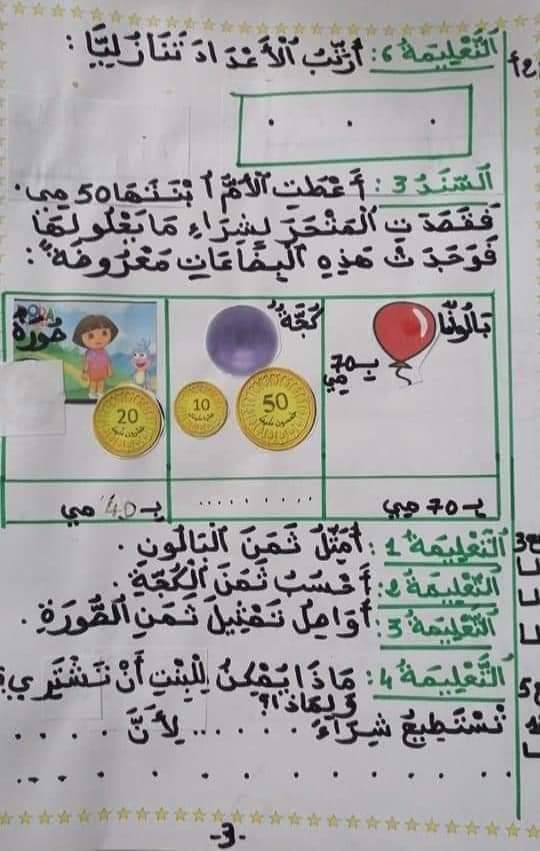 التَّعْلِيمَة 6: أُرَتِّبُ الْأَعْدَادَ تَنَازُلِيًّا:
السَّنَدُ 3: أَعْطَتِ الْأُمُّ ابْنَتَهَا 50 مي.
فَقَصَدَتِ الْمَتْجَرَ لِشِرَاءِ مَا يَحْلُو لَهَا
فَوَجَدَتْ هَذِهِ الْبِضَاعَاتِ مَعْرُوضَةً:
بَالُونًا
كُجَّة
صُورَة
بِـ 70 مي
50
10
20
بِـ 70 مي
.........
بِـ 40 مي
التَّعْلِيمَة 1: أُمَثِّلُ ثَمَنَ الْبَالُونِ.
التَّعْلِيمَة 2: أَحْسُبُ ثَمَنَ الْكُجَّةِ.
التَّعْلِيمَة 3: أُوَاصِلُ تَمْثِيلَ ثَمَنِ الصُّورَةِ.
التَّعْلِيمَة 4: مَاذَا يُمْكِنُ لِلْبِنْتِ أَنْ تَشْتَرِيَ؟
وَلِمَاذَا؟
تَسْتَطِيعُ شِرَاءَ ...... لِأَنَّ ....
............
-3-